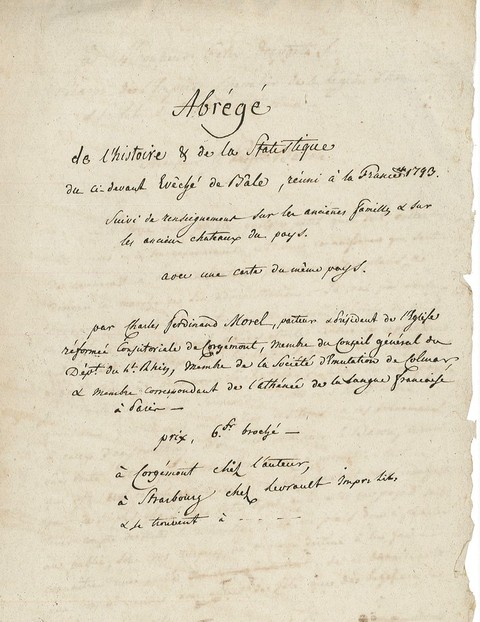 Abrégé
de l'histoire & de la Statistique
du ci-devant Evêché de Bâle, réuni à la France en 1793.
Suivi de renseignement sur les anciennes familles & sur
les anciens chateaux du pays.
avec une carte du même pays.
par Charles Ferdinand Morel, pasteur & Président de l'Eglise
réformée Consistoriale de Corgémont, membre du Conseil général du
Dépt. du ht. Rhin, membre de la Société d'émulation de Colmar
& membre correspondant de l'athénée de la langue française
à Paris —
prix, 6. fr broché —
à Corgémont chez l'auteur,
à Strasbourg chez Levrault impr. lib.
& se trouvent à - - - -